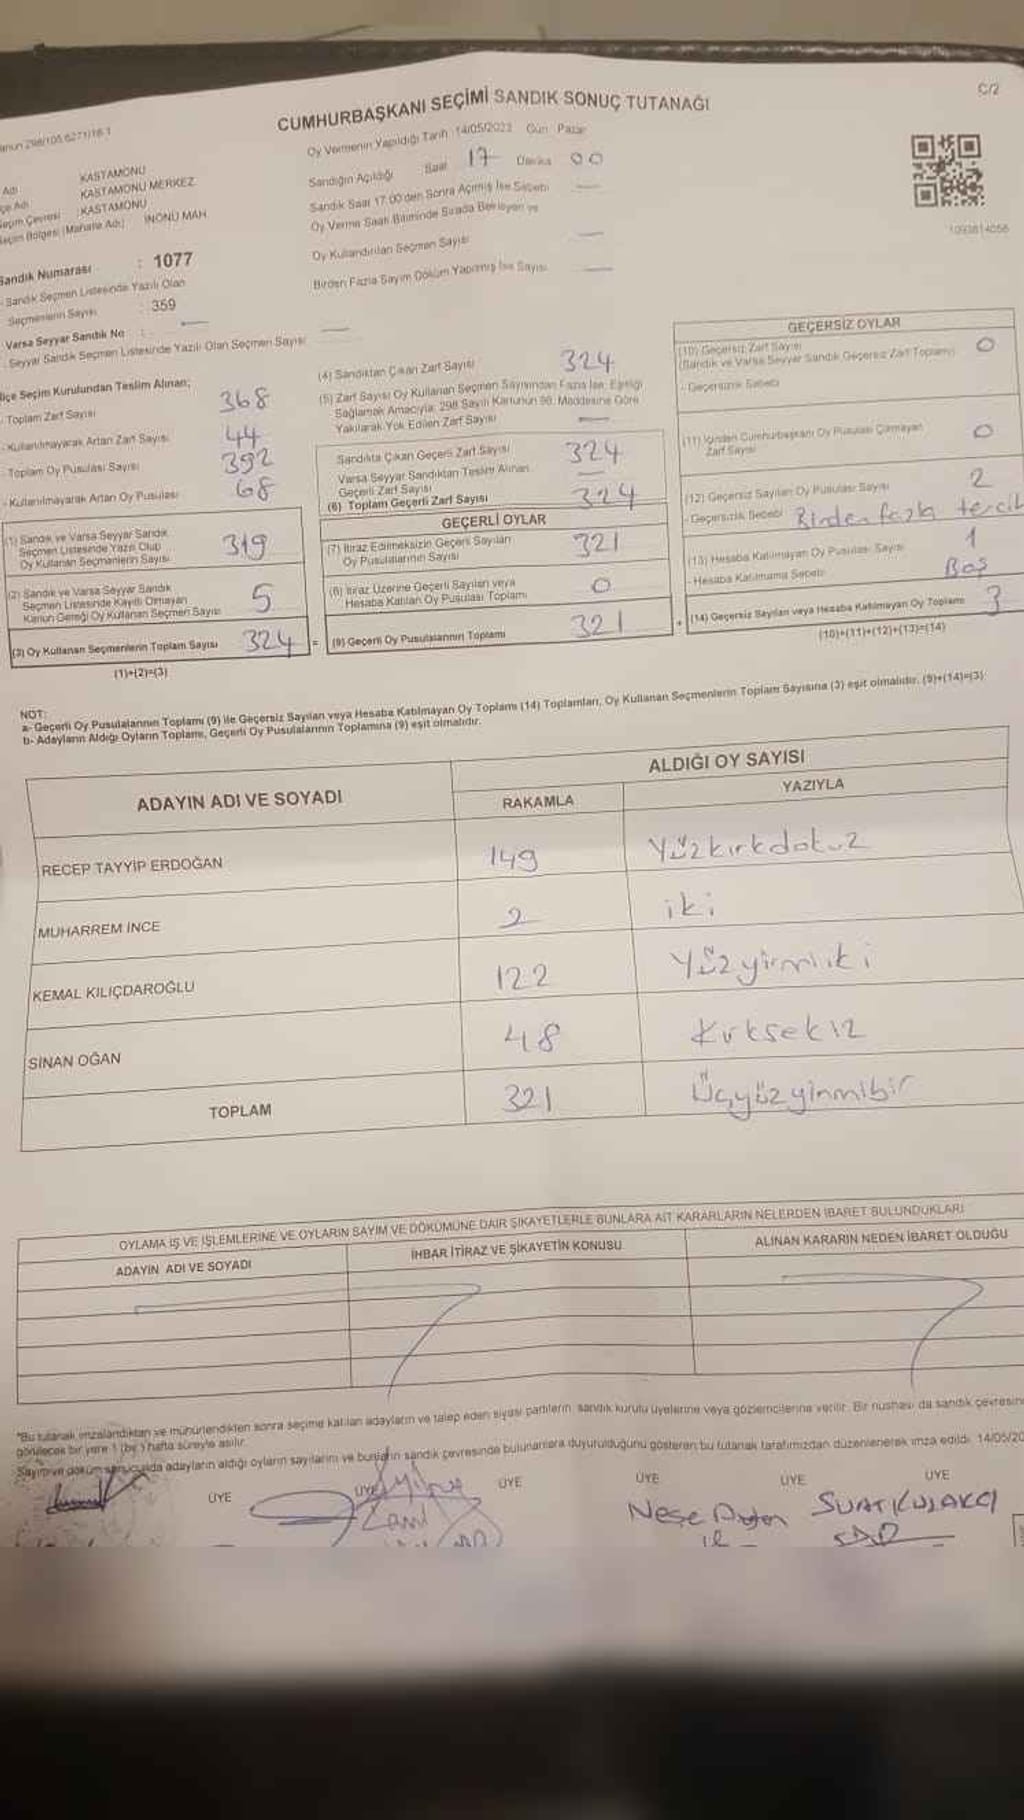 C/2
CUMHURBAŞKANI SEÇİMİ SANDIK SONUÇ TUTANAĞI
Oy Vermenin Yapıldığı Tarih 14/05/2023 Gün Pazar
KASTAMONU
KASTAMONU MERKEZ
KASTAMONU
Seçim Bölgesi (Mahalle Adı) İNÖNÜ MAH.
Sandık Numarası : 1077
Sandık Seçmen Listesinde Yazılı Olan
Seçmenlerin Sayısı : 359
Varsa Seyyar Sandık No :
Seyyar Sandık Seçmen Listesinde Yazılı Olan Seçmen Sayısı
Sandığın Açıldığı Saat 17 Dakika 00
Sandık Saat 17:00'den Sonra Açılmış İse Sebebi
Oy Verme Saati Bitiminde Sırada Bekleyen ve
Oy Kullandırılan Seçmen Sayısı
Birden Fazla Sayım Döküm Yapılmış İse Sayısı
İlçe Seçim Kurulundan Teslim Alınan;
- Toplam Zarf Sayısı 368
- Kullanılmayarak Artan Zarf Sayısı 44
- Toplam Oy Pusulası Sayısı 392
- Kullanılmayarak Artan Oy Pusulası 68
(1) Sandık ve Varsa Seyyar Sandık
Seçmen Listesinde Yazılı Olup
Oy Kullanan Seçmenlerin Sayısı 319
(2) Sandık ve Varsa Seyyar Sandık
Seçmen Listesinde Kayıtlı Olmayan
Kanun Gereği Oy Kullanan Seçmen Sayısı 5
(3) Oy Kullanan Seçmenlerin Toplam Sayısı 324
(1)+(2)=(3)
(4) Sandıktan Çıkan Zarf Sayısı 324
(5) Zarf Sayısı Oy Kullanan Seçmen Sayısından Fazla İse, Eşitliği
Sağlamak Amacıyla, 298 Sayılı Kanunun 98. Maddesine Göre
Yakılarak Yok Edilen Zarf Sayısı
Sandıkta Çıkan Geçerli Zarf Sayısı 324
Varsa Seyyar Sandıktan Teslim Alınan
Geçerli Zarf Sayısı
(6) Toplam Geçerli Zarf Sayısı 324
GEÇERLİ OYLAR
(7) İtiraz Edilmeksizin Geçerli Sayılan
Oy Pusulalarının Sayısı 321
(8) İtiraz Üzerine Geçerli Sayılan veya
Hesaba Katılan Oy Pusulası Toplamı 0
= (9) Geçerli Oy Pusulalarının Toplamı 321
GEÇERSİZ OYLAR
(10) Geçersiz Zarf Sayısı 0
(Sandık ve Varsa Seyyar Sandık Geçersiz Zarf Toplamı)
- Geçersizlik Sebebi
(11) İçinden Cumhurbaşkanı Oy Pusulası Çıkmayan
Zarf Sayısı 0
(12) Geçersiz Sayılan Oy Pusulası Sayısı 2
- Geçersizlik Sebebi Birden fazla tercih
(13) Hesaba Katılmayan Oy Pusulası Sayısı 1
- Hesaba Katılmama Sebebi Boş
+ (14) Geçersiz Sayılan veya Hesaba Katılmayan Oy Toplamı 3
(10)+(11)+(12)+(13)=(14)
NOT:
a- Geçerli Oy Pusulalarının Toplamı (9) ile Geçersiz Sayılan veya Hesaba Katılmayan Oy Toplamı (14) Toplamları, Oy Kullanan Seçmenlerin Toplam Sayısına (3) eşit olmalıdır. (9)+(14)=(3)
b- Adayların Aldığı Oyların Toplamı, Geçerli Oy Pusulalarının Toplamına (9) eşit olmalıdır.
ADAYIN ADI VE SOYADI
ALDIĞI OY SAYISI
RAKAMLA YAZIYLA
RECEP TAYYİP ERDOĞAN 149 Yüzkırkdokuz
MUHARREM İNCE 2 iki
KEMAL KILIÇDAROĞLU 122 Yüzyirmiiki
SİNAN OĞAN 48 Kırksekiz
TOPLAM 321 Üçyüzyirmibir
OYLAMA İŞ VE İŞLEMLERİNE VE OYLARIN SAYIM VE DÖKÜMÜNE DAİR ŞİKAYETLERLE BUNLARA AİT KARARLARIN NELERDEN İBARET BULUNDUKLARI
ADAYIN ADI VE SOYADI İHBAR İTİRAZ VE ŞİKAYETİN KONUSU ALINAN KARARIN NEDEN İBARET OLDUĞU
"Bu tutanak imzalandıktan ve mühürlendikten sonra seçime katılan adayların ve talep eden siyasi partilerin sandık kurulu üyelerine veya gözlemcilerine verilir. Bir nüshası da sandık çevresinin
görülecek bir yere 1 (bir) hafta süreyle asılır.
Sayım ve döküm sonucunda adayların aldığı oyların sayılarını ve bunların sandık çevresinde bulunanlara duyurulduğunu gösteren bu tutanak tarafımızdan düzenlenerek imza edildi. 14/05/20
ÜYE ÜYE ÜYE ÜYE ÜYE ÜYE
Neşe